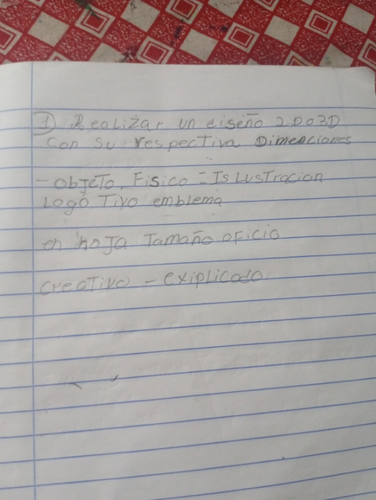 1) Realizar un diseño 2.D o 3D
con su respectiva Dimenciones
- objeto Fisico = Islustracion
Logo Tivo emblema
en hoja Tamaño oficio
creativo - exiplicado